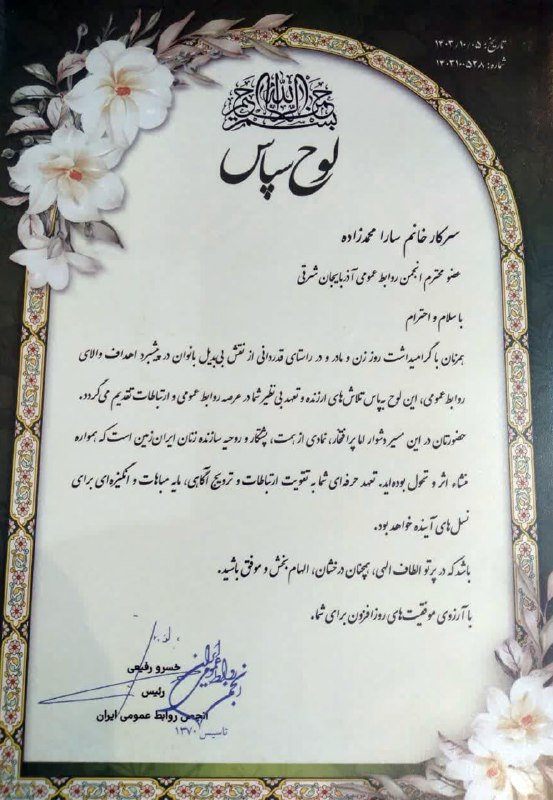 تاریخ: ۱۴۰۳/۱۰/۰۵
شماره: ۱۴۰۳۱۰۰۵۲۸
بسم الله الرحمن الرحیم
لوح سپاس
سرکار خانم سارا محمدزاده
عضو محترم انجمن روابط عمومی آذربایجان شرقی
با سلام و احترام
همزمان با گرامیداشت روز زن و مادر و در راستای قدردانی از نقش بی‌بدیل بانوان در پیشبرد اهداف والای
روابط عمومی، این لوح سپاس تلاش‌های ارزنده و تعهد بی‌نظیر شما در عرصه روابط عمومی و ارتباطات تقدیم می‌گردد.
حضورتان در این مسیر دشوار اما پرافتخار، نمادی از همت، پشتکار و روحیه سازنده زنان ایران‌زمین است که همواره
منشاء اثر و تحول بوده‌اید. تعهد حرفه‌ای شما به تقویت ارتباطات و ترویج آگاهی، مایه مباهات و انگیزه‌ای برای
نسل‌های آینده خواهد بود.
باشد که در پرتو الطاف الهی، همچنان درخشان، الهام بخش و موفق باشید.
با آرزوی موفقیت‌های روزافزون برای شما.
خسرو رفیعی
رئیس
انجمن روابط عمومی ایران
تاسیس ۱۳۷۰
انجمن روابط عمومی ایران